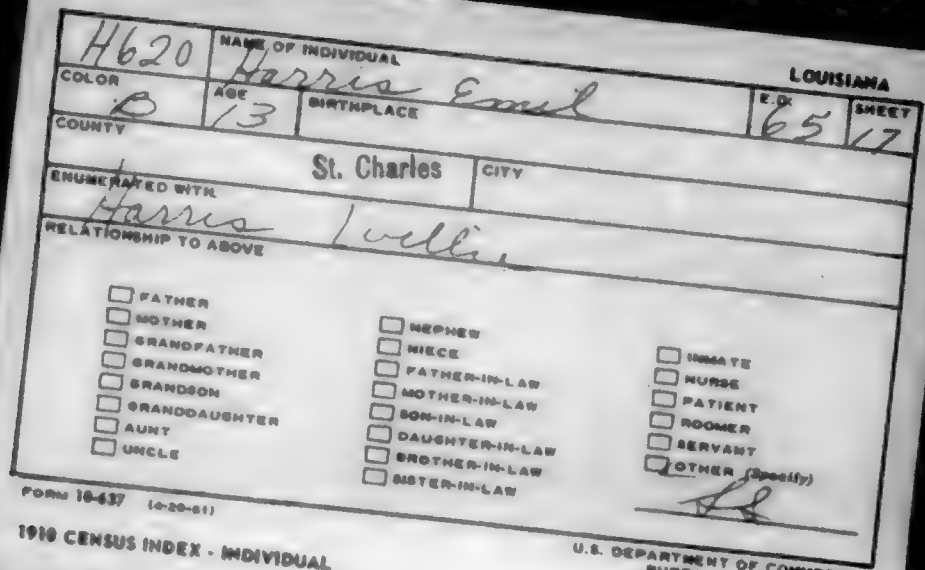 LOUISIANA
H620 NAME OF INDIVIDUAL Harris Emil E.D. 65 SHEET 17
COLOR B AGE 13 BIRTHPLACE
COUNTY St. Charles CITY
ENUMERATED WITH
Harris
RELATIONSHIP TO ABOVE
FATHER
MOTHER
GRANDFATHER
GRANDMOTHER
GRANDSON
GRANDDAUGHTER
AUNT
UNCLE
NEPHEW
NIECE
FATHER-IN-LAW
MOTHER-IN-LAW
SON-IN-LAW
DAUGHTER-IN-LAW
BROTHER-IN-LAW
SISTER-IN-LAW
INMATE
NURSE
PATIENT
ROOMER
SERVANT
OTHER (Specify)
FORM 10-637 (6-20-61)
1910 CENSUS INDEX - INDIVIDUAL
U.S. DEPARTMENT OF